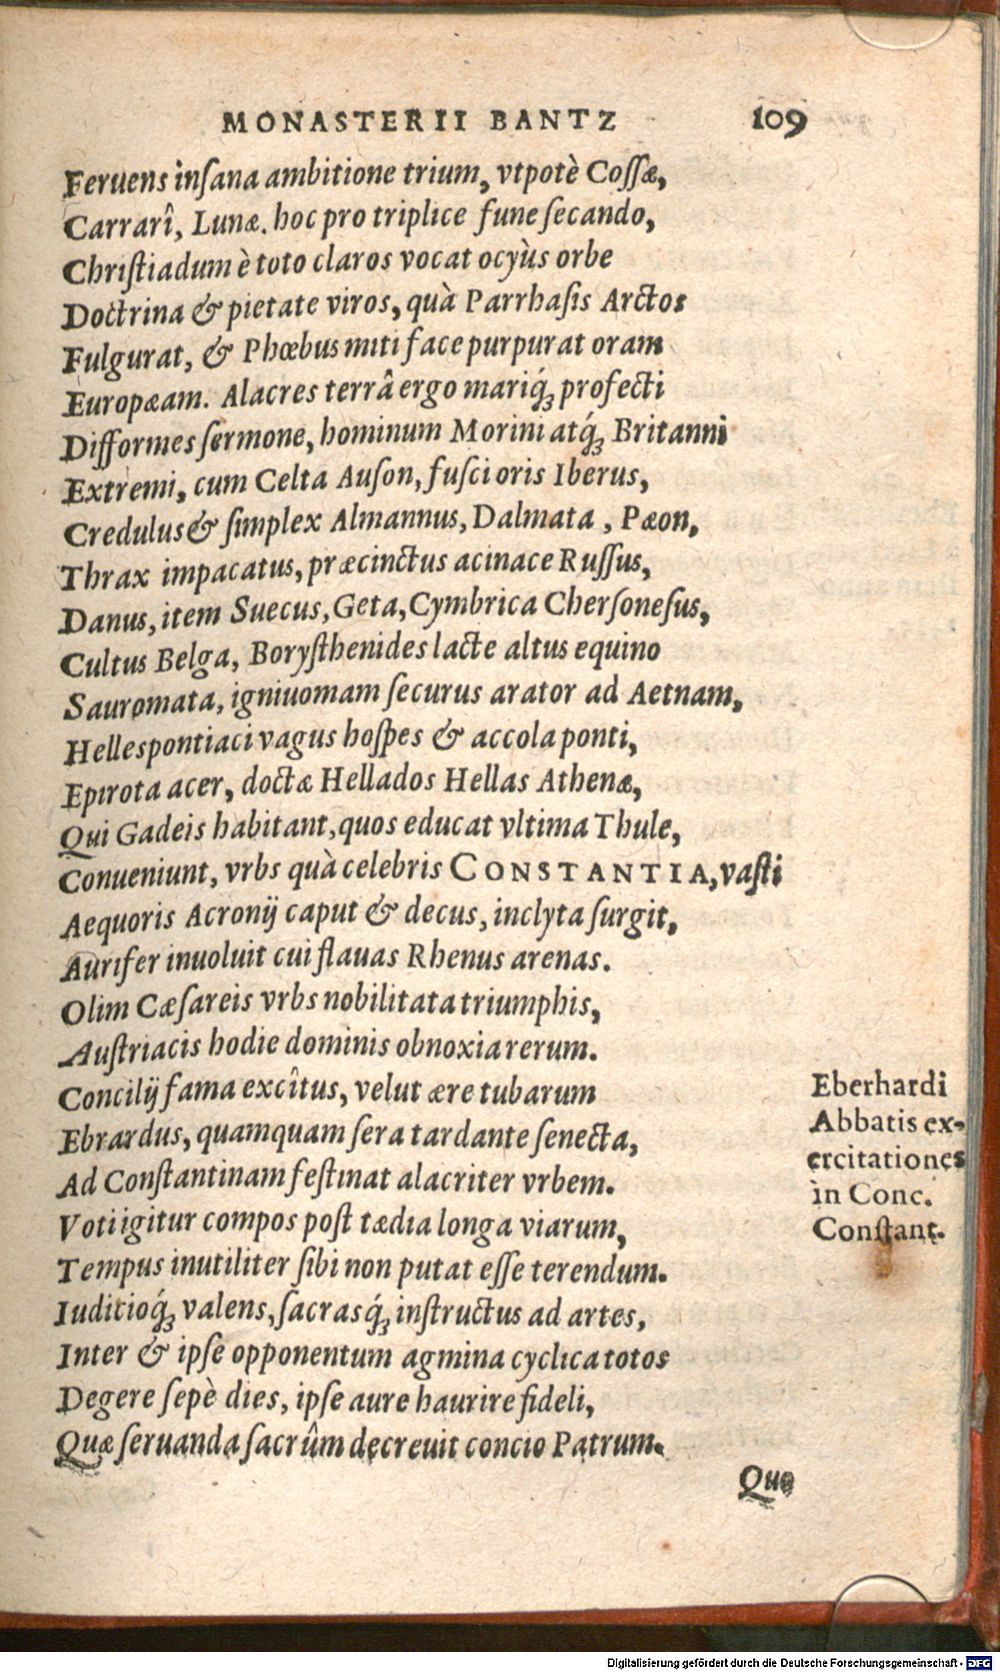 MONASTERII BANTZ 109
Feruens inſana ambitione trium, vtpotè Coſſæ,
Carrarî, Lunæ. hoc pro triplice fune ſecando,
Chriſtiadum è toto claros vocat ocyùs orbe
Doctrina & pietate viros, quà Parrhaſis Arctos
Fulgurat, & Phœbus miti face purpurat oram
Europæam. Alacres terrâ ergo mariq́ꝫ profecti
Difformes ſermone, hominum Morini atq́ꝫ Britanni
Extremi, cum Celta Auſon, fuſci oris Iberus,
Credulus & ſimplex Almannus, Dalmata, Pæon,
Thrax impacatus, præcinctus acinace Ruſſus,
Danus, item Suecus, Geta, Cymbrica Cherſoneſus,
Cultus Belga, Boryſthenides lacte altus equino
Sauromata, igniuomam ſecurus arator ad Aetnam,
Hellespontiaci vagus hoſpes & accola ponti,
Epirota acer, doctæ Hellados Hellas Athenæ,
Qui Gadeis habitant, quos educat vltima Thule,
Conueniunt, vrbs quà celebris CONSTANTIA, vaſti
Aequoris Acronij caput & decus, inclyta ſurgit,
Aurifer inuoluit cui flauas Rhenus arenas.
Olim Cæſareis vrbs nobilitata triumphis,
Auſtriacis hodie dominis obnoxia rerum.
Concilij fama excîtus, velut ære tubarum
Ebrardus, quamquam ſera tardante ſenecta,
Ad Conſtantinam feſtinat alacriter vrbem.
Voti igitur compos poſt tædia longa viarum,
Tempus inutiliter ſibi non putat eſſe terendum.
Iudicioq́ꝫ valens, ſacrasq́ꝫ inſtructus ad artes,
Inter & ipſe opponentum agmina cyclica totos
Degere ſepè dies, ipſe aure haurire fideli,
Quæ ſeruanda ſacrûm decreuit concio Patrum.
Eberhardi
Abbatis ex-
ercitationes
in Conc.
Conſtant.
Quo
Digitalisierung gefördert durch die Deutsche Forschungsgemeinschaft - DFG